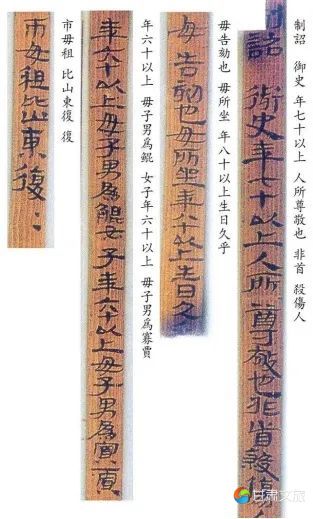 制詔 御史 年七十以上 人所尊敬也 非首 殺傷人
制詔御史年七十以上人所尊敬也非首殺傷人
毋告劾也 毋所坐 年八十以上生日久乎
毋告劾也毋所坐年八十以上生日久
年六十以上 毋子男為鯤 女子年六十以上 毋子男為寡賈
年六十以上毋子男為鯤女子年六十以上毋子男為寡賈
市毋租 比山東復 復
市毋租比山東復〻
甘肃文旅